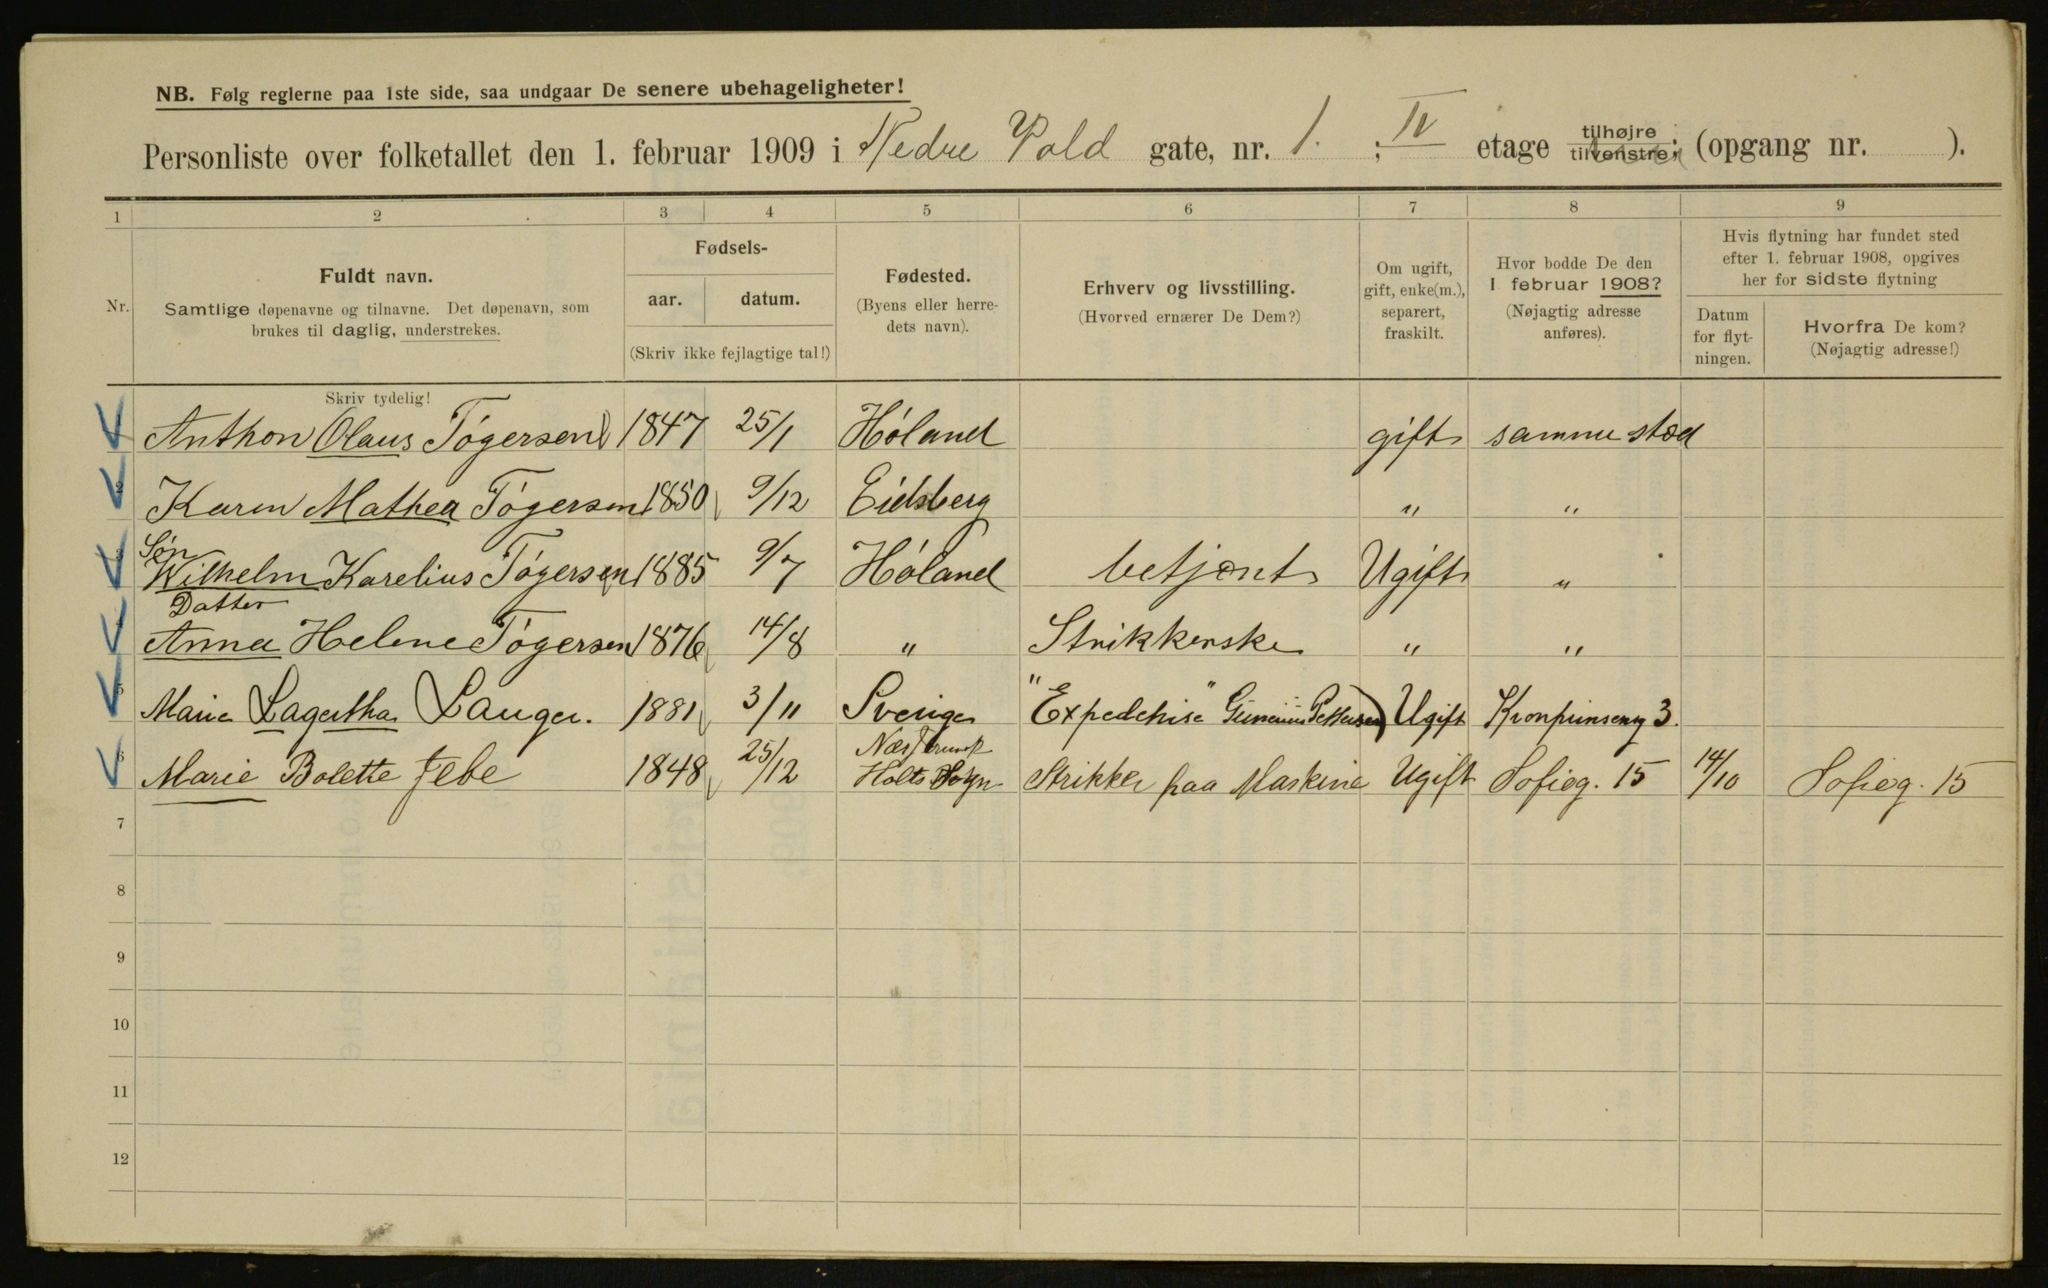 NB. Følg reglerne paa 1ste side, saa undgaar De senere ubehageligheter!
Personliste over folketallet den 1. februar 1909 i Nedre Vold gate, nr. 1. ; IV etage tilhøjre tilvenstre; (opgang nr. ).
1 2 3 4 5 6 7 8 9
Nr.
Fuldt navn.
Samtlige døpenavne og tilnavne. Det døpenavn, som
brukes til daglig, understrekes.
Fødsels-
aar. datum.
(Skriv ikke fejlagtige tal!)
Fødested.
(Byens eller herre-
dets navn).
Erhverv og livsstilling.
(Hvorved ernærer De Dem?)
Om ugift,
gift, enke(m.),
separert,
fraskilt.
Hvor bodde De den
1 februar 1908?
(Nøjagtig adresse
anføres).
Hvis flytning har fundet sted
efter 1. februar 1908, opgives
her for sidste flytning
Datum
for flyt-
ningen.
Hvorfra De kom?
(Nøjagtig adresse!)
Skriv tydelig!
Anthon Olaus Tógersen 1847 25/1 Hóland gift samme sted
2 Karen Mathea Tógersen 1850 9/12 Eidsberg " "
Søn
Wilhelm Karelius Tógersen 1885 9/7 Hóland betjent Ugift "
Datter
Anna Helene Tógersen 1876 14/8 " Strikkerske " "
5 Marie Lagertha Langer. 1881 3/11 Sverige "Expedetrise" Pettersen) Ugift Kronprinseng 3.
6 Marie Bolette Jebe 1848 25/12 Næs Holts Sogn Strikker paa Maskine Ugift Sofieg. 15 14/10 Sofieg. 15
7
8
9
10
11
12